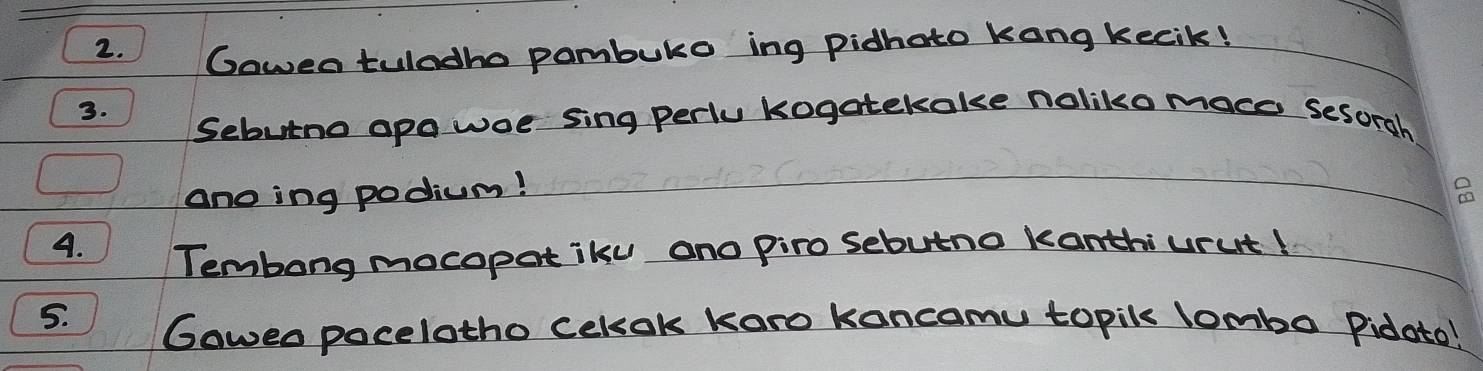 2. Gawea tuladha pambuka ing pidhato kang kecik!
3. Sebutna apa wae sing perlu kogatekake nalika maca sesorah
ana ing podium!
4. Tembang macapat iku ana piro sebutna kanthi urut!
5. Gawea pacelatho cekak karo kancamu topik lomba pidato!
BD